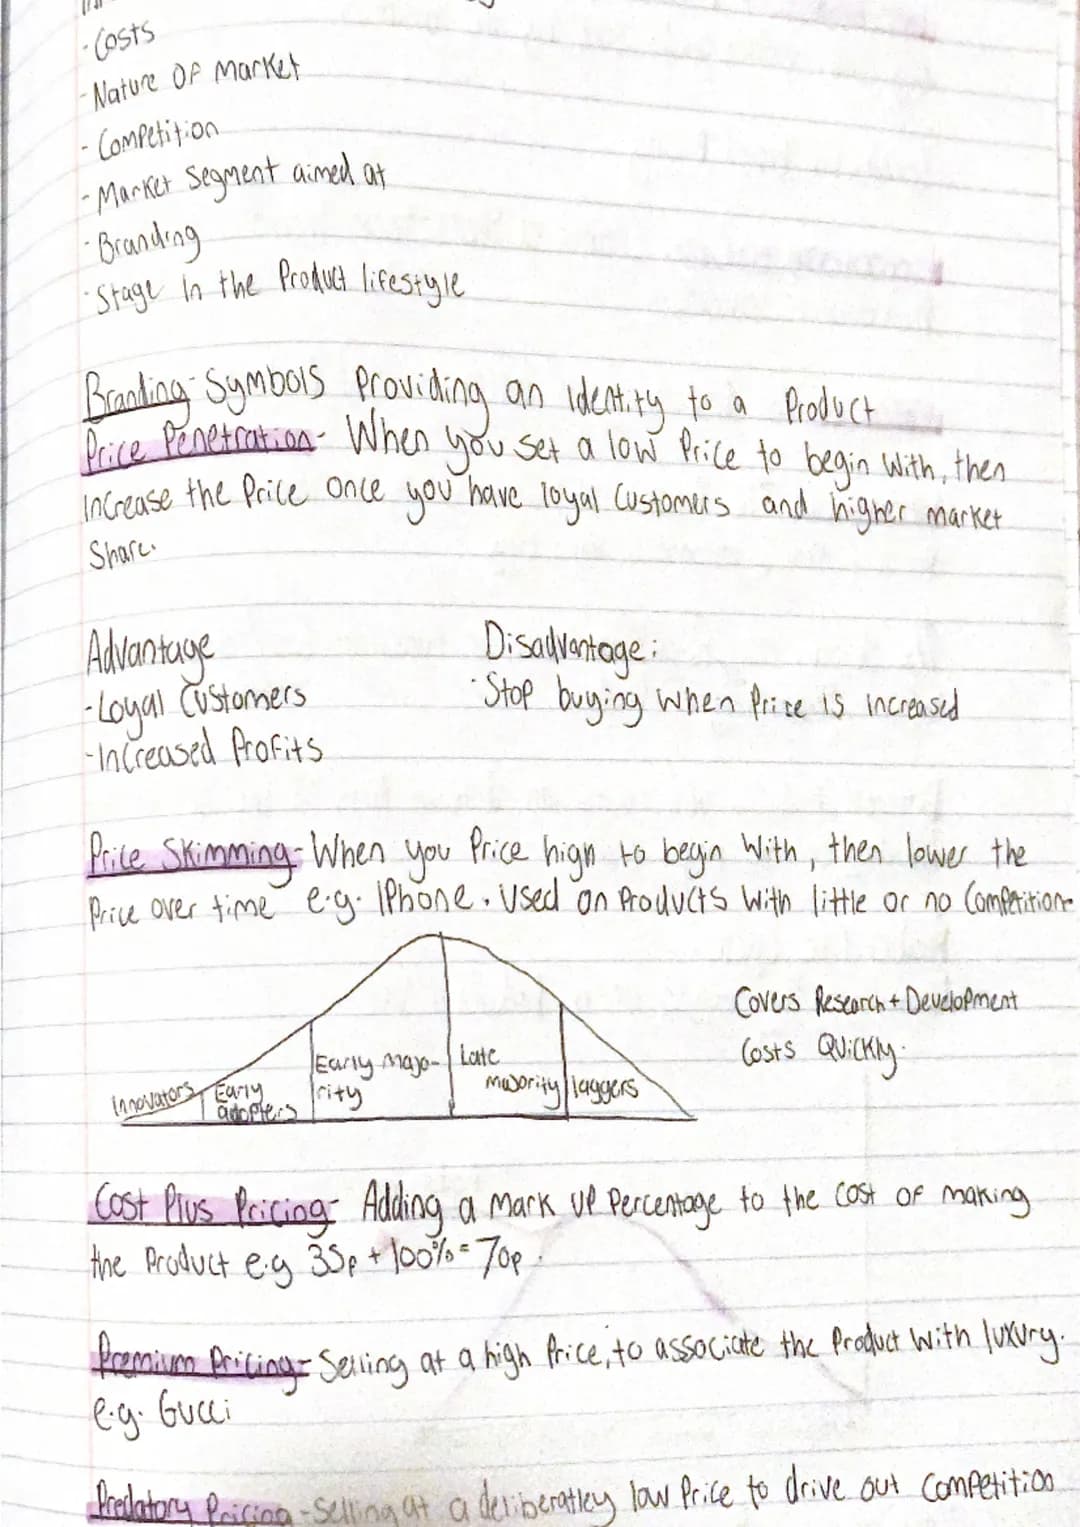 - Costs
- Nature Of Market
- Competition
- Market Segment aimed at
- Branding
- Stage In the Product lifestyle
Branding - Symbols Providing an Identity to a Product
Price Penetration - When you set a low Price to begin With, then
increase the Price once you have loyal Customers and higher market
Share.
Advantage
- Loyal Customers
- Increased Profits
Disadvantage:
- Stop buying when Price is increased
Price Skimming - When you Price high to begin With, then lower the
Price over time e.g. IPhone. Used on Products With little or no Competition
Covers Research + Development
Costs Quickly.
Innovators
Early
adopters
Early Majo-
rity
Late
Majority
laggers
Cost Plus Pricing - Adding a Mark UP Percentage to the Cost of making
the Product e.g 35p + 100% = 70p.
Premium Pricing - Selling at a high Price, to associate the Product With luxury.
e.g. Gucci
Predatory Pricing - Selling at a deliberatley low Price to drive out Competition